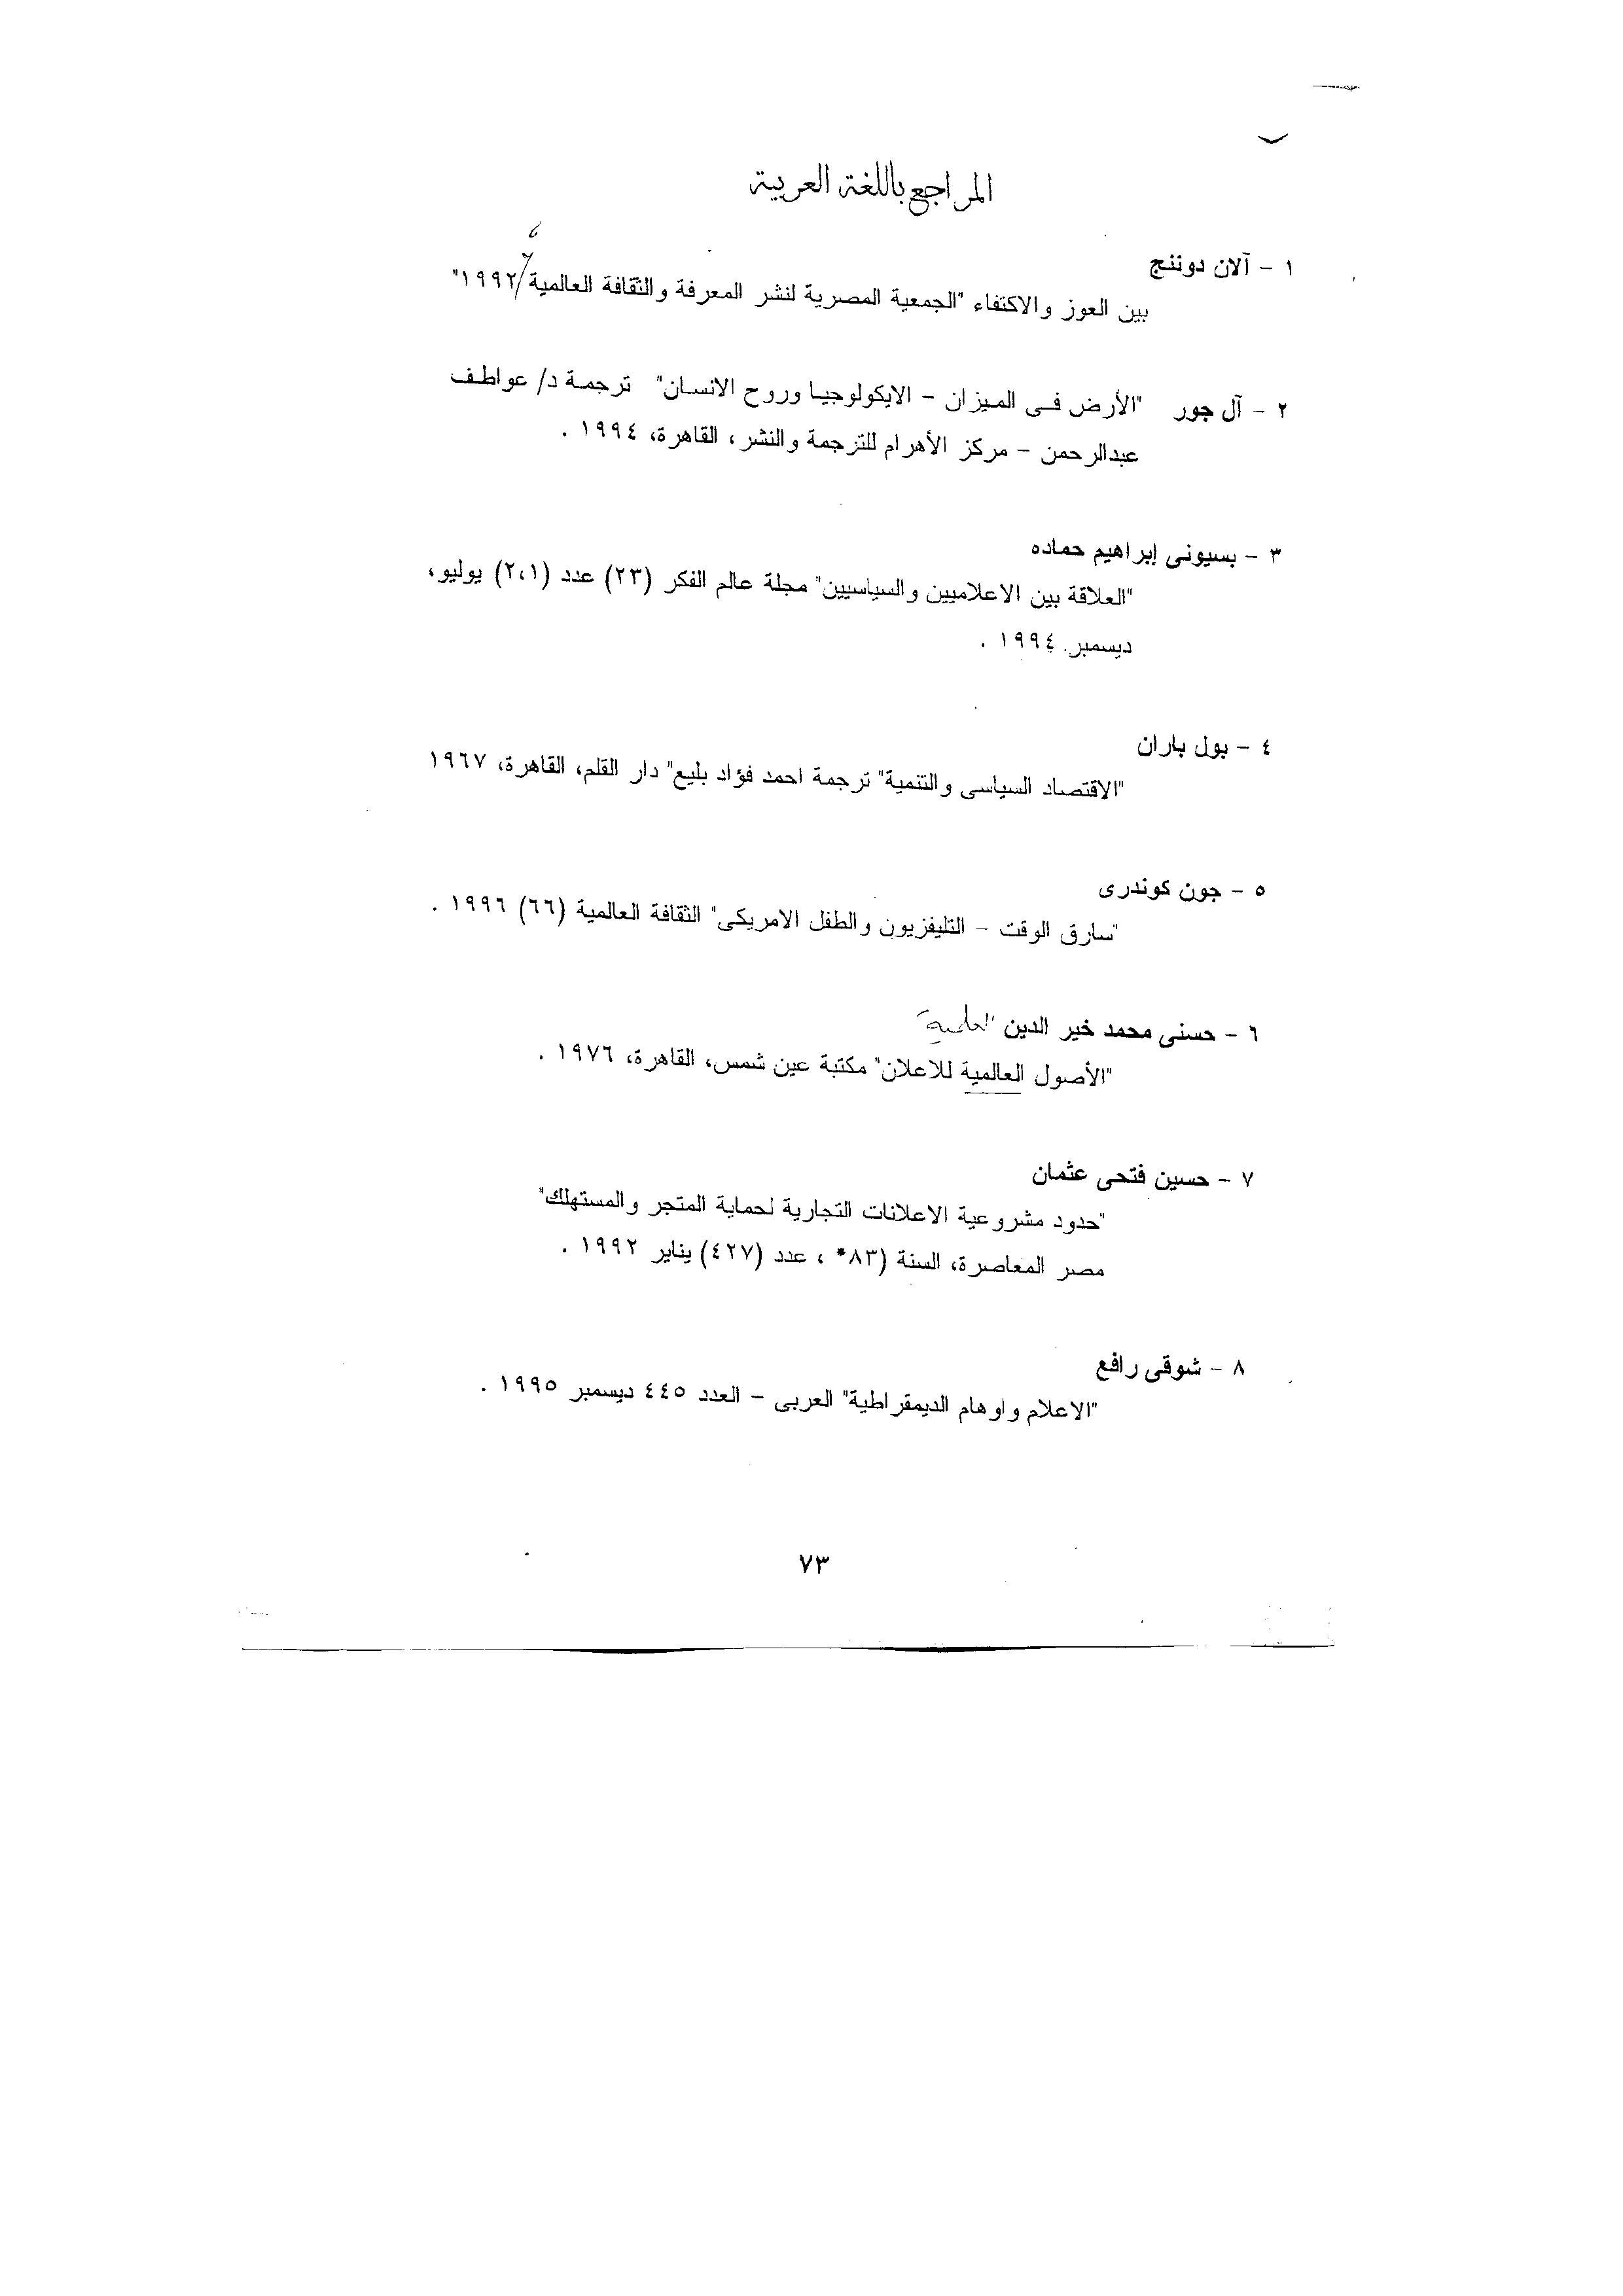 المراجع باللغة العربية
١ - آلان دوننج
بين العوز والاكتفاء "الجمعية المصرية لنشر المعرفة والثقافة العالمية/ ١٩٩٢"
٢ - آل جور "الأرض فى الميزان - الايكولوجيا وروح الانسان" ترجمة د/ عواطف
عبدالرحمن - مركز الأهرام للترجمة والنشر، القاهرة، ١٩٩٤ .
٣ - بسيونى إبراهيم حماده
"العلاقة بين الاعلاميين والسياسيين" مجلة عالم الفكر (٢٣) عدد (٢،١) يوليو،
ديسمبر ١٩٩٤ .
٤ - بول باران
"الاقتصاد السياسى والتنمية" ترجمة احمد فؤاد بليع" دار القلم، القاهرة، ١٩٦٧
٥ - جون كوندرى
"سارق الوقت - التليفزيون والطفل الامريكى" الثقافة العالمية (٦٦) ١٩٩٦ .
٦ - حسنى محمد خير الدين
"الأصول العالمية للاعلان" مكتبة عين شمس، القاهرة، ١٩٧٦ .
٧ - حسين فتحى عثمان
"حدود مشروعية الاعلانات التجارية لحماية المتجر والمستهلك"
مصر المعاصرة، السنة (٨٣* ، عدد (٤٢٧) يناير ١٩٩٢ .
٨ - شوقى رافع
"الاعلام واوهام الديمقراطية" العربى - العدد ٤٤٥ ديسمبر ١٩٩٥ .
٧٣